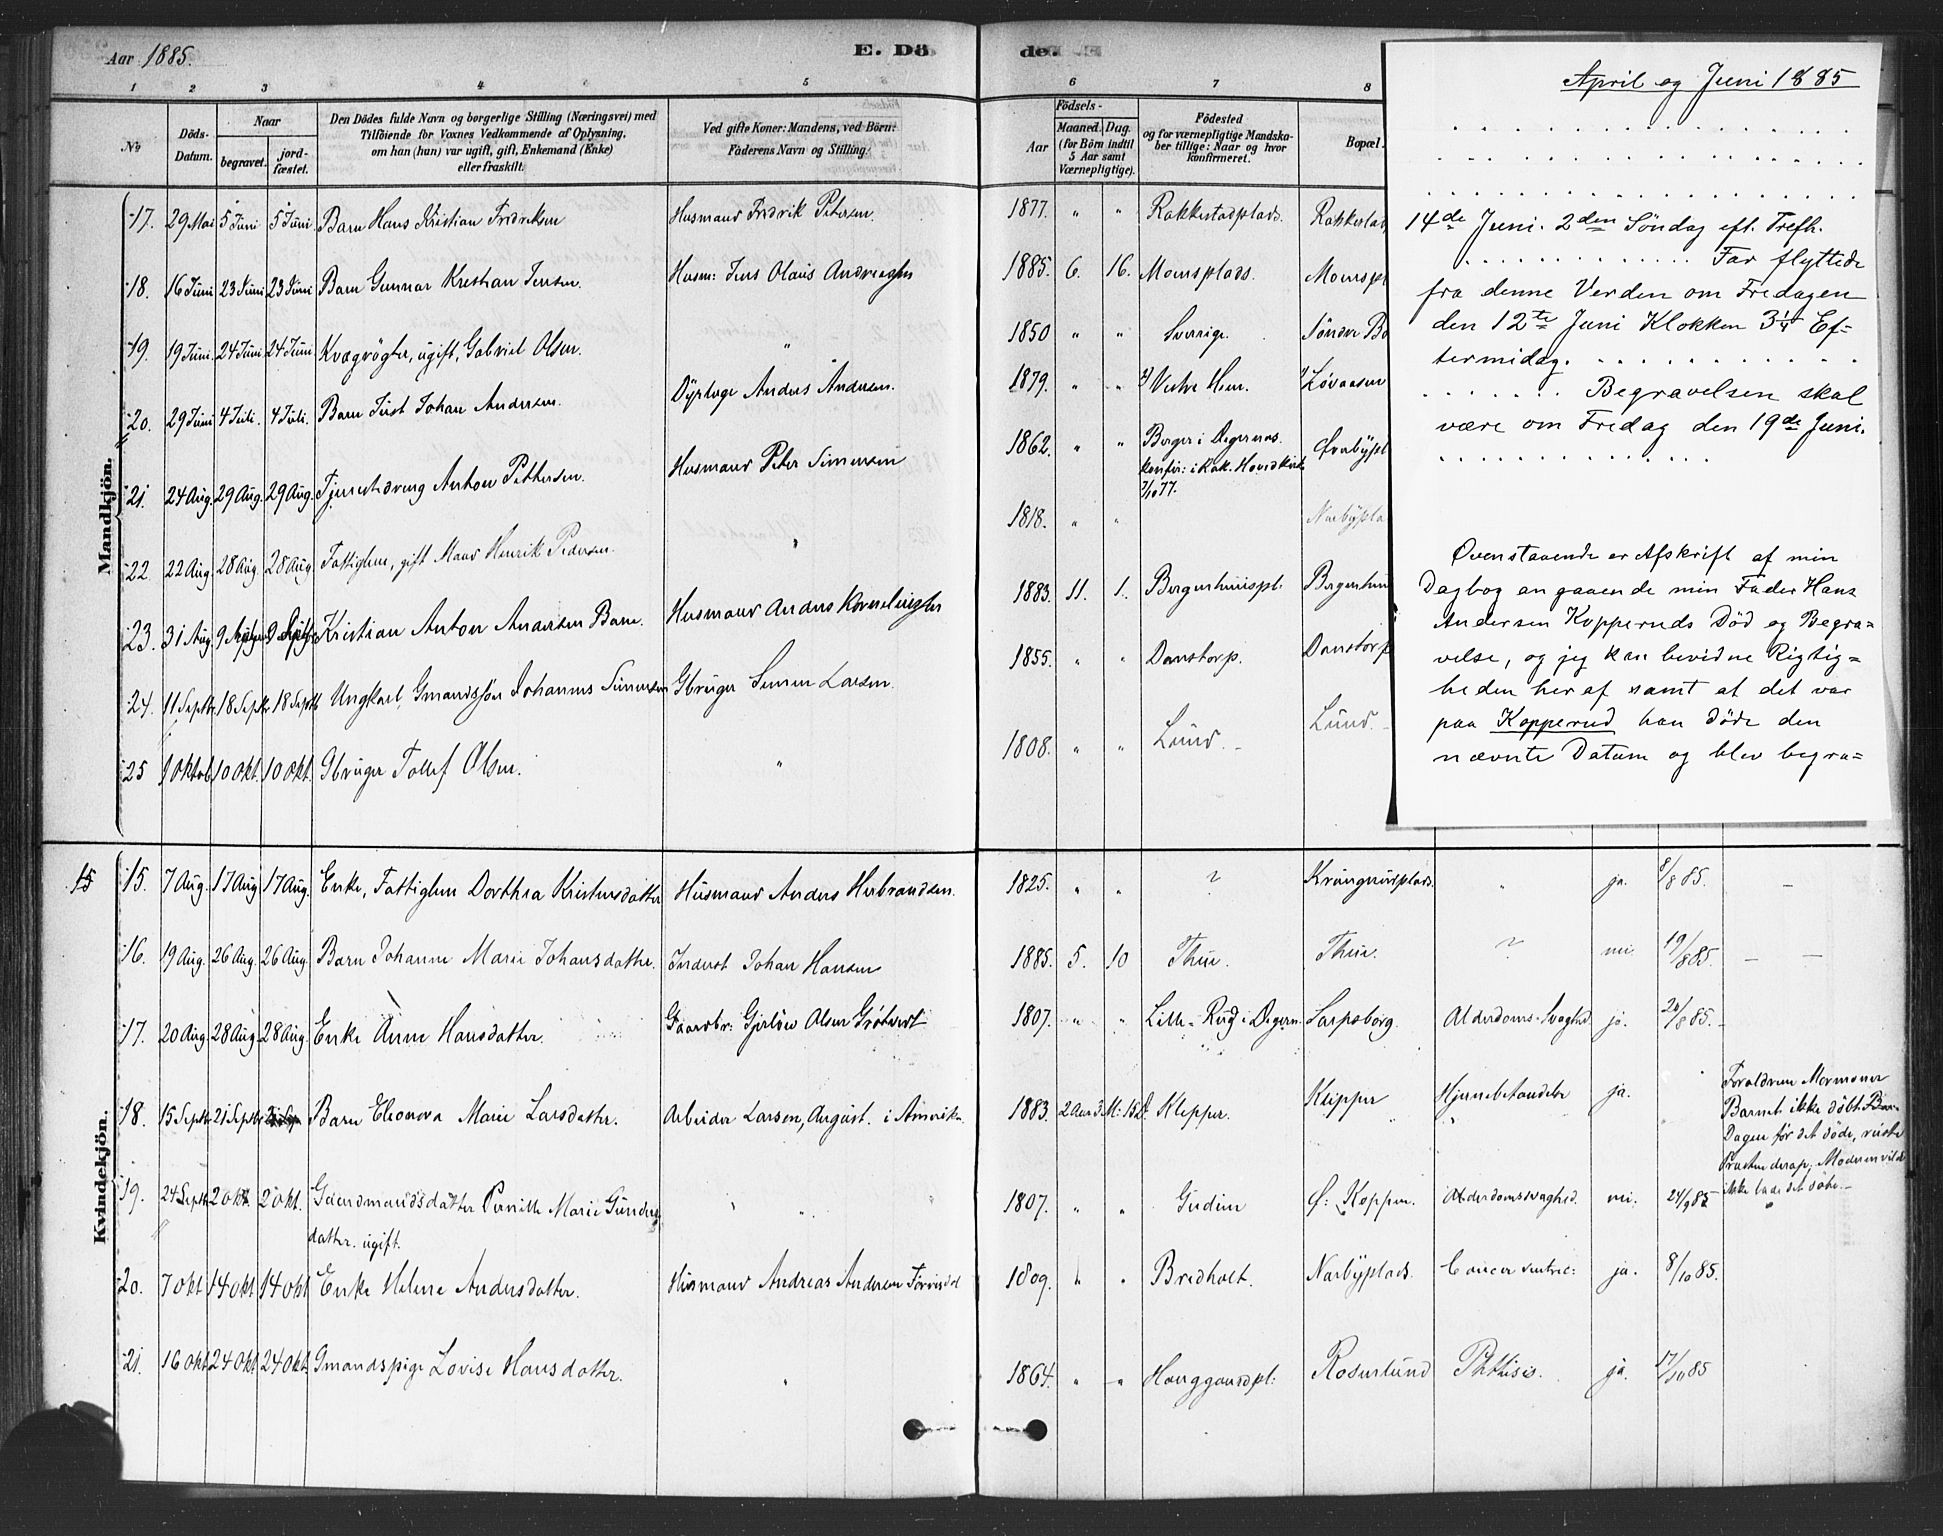 Aar 1885.
E. Dö de.
1 2 3 4 5 6 7 8
No
Döds-Datum.
Naar
begravet.
jordfæstet.
Den Dödes fulde Navn og borgerlige Stilling (Næringsvei) med
Tilföiende for Voxnes Vedkommende af Oplysning,
om han (hun) var ugift, gift, Enkemand (Enke)
eller fraskilt.
Ved gifte Koner: Mandens, ved Börn:
Faderens Navn og Stilling.
Födsels-
Aar
Maaned. Dag.
(for Börn indtil
5 Aar samt
Værnepligtige).
Födested
og for værnepligtige Mandskaber tillige: Naar og hvor
konfirmeret.
Bopæl.
Mandkjön.
17. 29 Mai 5 Juni 5 Juni Barn Hans Kristian Fredriksen Husmand Fredrik Petersen. 1877. " " Rakkestadplads.
18. 16 Juni 23 Juni 23 Juni Barn Gunnar Kristian Jensen Husm: Jens Olaus 1885. 6. 16. Momsplads.
19. 19 Juni. 24 Juni 24 Juni Kvægrögter, ugift, Gabriel Olsen. " 1850 " Sverige. Søndre Bo
20. 29 Juni 4 Juli. 4 Juli. Barn Johan Andersen. Anders Andersen. 1879. " " Vestre Løvaasen
21. 24 Aug. 29 Aug. 29 Aug. Tjenestedreng Anton Pettersen. Husmand Peter Simensen 1862. " " Berger i Degernes.
konfir: i Rak. Hovedkirke
7/10 77.
22. 22 Aug. 28 Aug. 28 Aug Fattiglem, gift Mand Henrik Pedersen. " 1818. " "
23. 31 Aug. 9 9 Kristian Anton Andersen Barn. Husmand Anders 1883. 11. 1.
24. 11 Septbr. 18 Septbr. 18 Septb Ungkarl, Gmandssøn Johannes Simensen Gbruger Simen Larsen. 1855. " " Danstorp. Danstorp
25 1 Oktob 10 Okt. 10 Okt. Gbruger Tollef Olsen. " 1808. " " Lund. Lund.
Kvindekjön.
15 15. 7 Aug. 17 Aug 17 Aug. Enke, Fattiglem Dorthea Kristensdatter Husmand Anders Herbrandsen. 1825. " " ? " ja. 8/8 85. –
16. 19 Aug. 26 Aug. 26 Aug Barn Johanne Marie Johansdatter. Inderst Johan Hansen 1885. 5. 10 Thue. Thue. ? nei. 19/8 85. – –
17. 20 Aug. 28 Aug. 28 Aug. Enke Anne Hansdatter. Gaardbr: Olsen 1807. " " Lille-Rud i Degern. Sarpsborg. Alderdoms-Svaghed. ja. 20/8 85.
18. 15 Septbr 21 Septbr Barn Eleonora Marie Larsdatter. Arbeider Larsen, August. i Amerika 1883. 2 Aar 3 M: 15 D. Klepper. Klepper Hjernebetændelse ja.
Forældrene Mormoner
Barnet ikke døbt.
Dagen før det døde, reiste
Præsten derop, Moderen vilde
ikke lade det døbe.
19. 24 Septbr 2 Okt. 2 Okt. Gaardmandsdatter Pernille Marie Gunders
datter. ugift. " 1807. " " Gudim Alderdomssvaghed. nei. 24/9 85 "
20. 7 Okt 14 Okt 14 Okt Enke Helene Andersdatter. Husmand Andreas Andersen 1809. " " Bredholt. Narbyplads. Cancer ventric: ja. 8/10 85.
21. 16 Okt 24 Okt 24 Okt. Gmandspige Lovise Hansdatter. " 1864. " " Hauggaardpl: Rosenlund Phthisis. ja. 17/10 85
April og Juni 1885
14de Juni. 2den Søndag eft. Trefh.
. . . . . . . . . . . . . Far flyttede
fra denne Verden om Fredagen
den 12te Juni Klokken 3¼ Ef=
termidag. . . . . . . . . . . . .
. . . . . . . Begravelsen skal
være om Fredag den 19de Juni.
Ovenstaaende er Afskrift af min
Dagbog angaaende min Fader Hans
Andersen Kopperuds Død og Begra=
velse, og jeg kan bevidne Rigtig=
heden heraf samt at det var
paa Kopperud han døde den
nævnte Datum og blev begra=